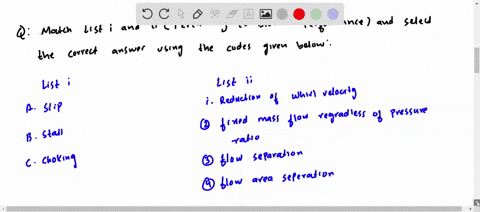 Q: Match List i and
and select
the correct answer using the codes given below:
List i
List ii
A. Slip
i. Reduction of whirl velocity
② fixed mass flow regradless of pressure
B. Stall
ratio
C. Choking
③ flow separation
④ flow area seperation